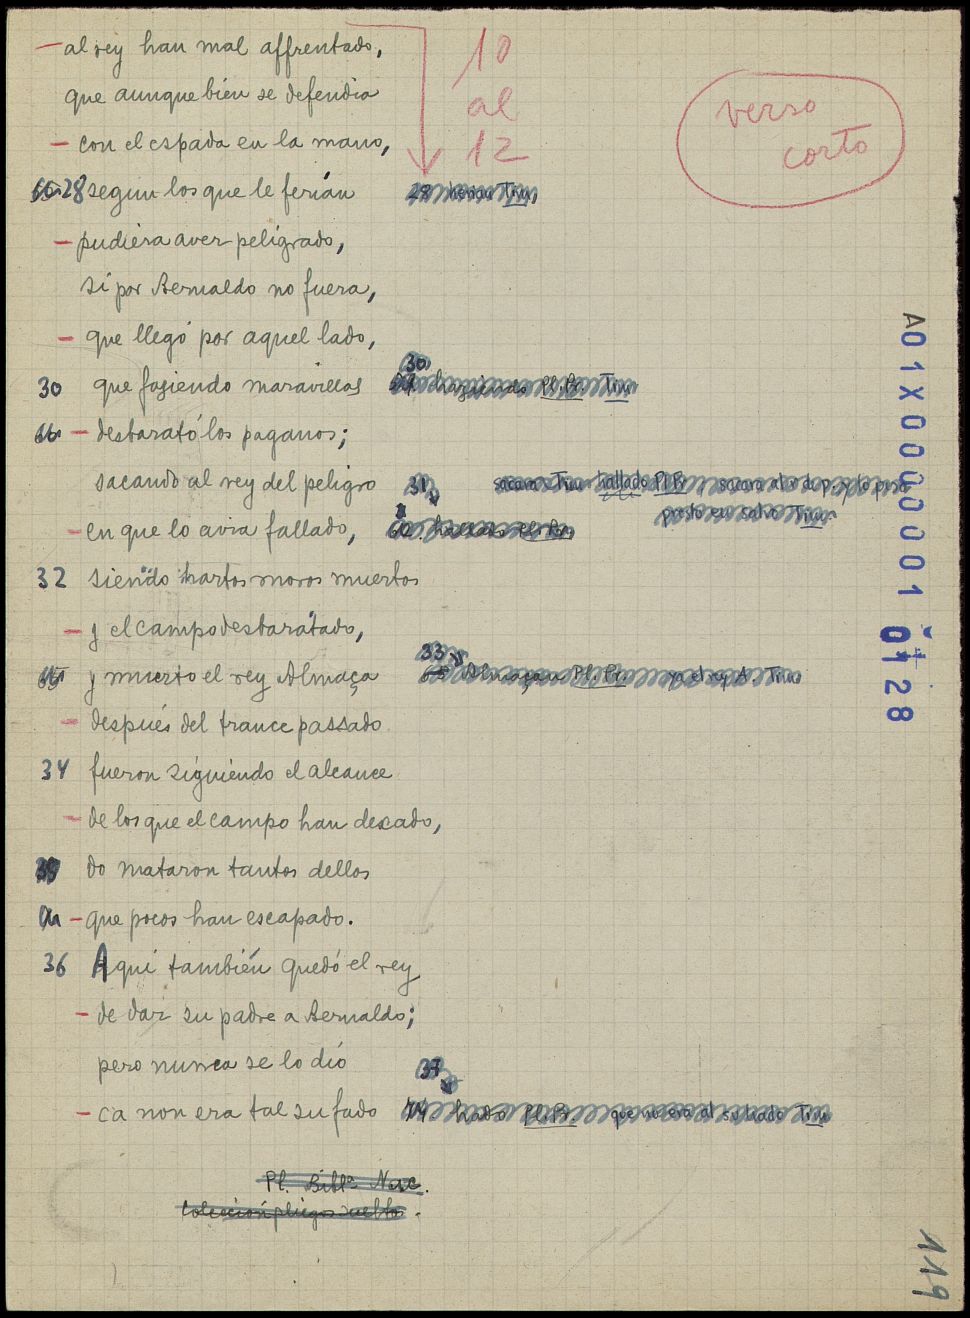 — al rey han mal affrentado,
que aunque bien se defendia
— con el espada en la mano,
28 segun los que le ferián
— pudiera aver peligrado,
si por Bernaldo no fuera,
— que llegó por aquel lado,
30 que faziendo maravillas
— desbarató los paganos;
sacando al rey del peligro
— en que lo avia fallado,
32 siendo hartos moros muertos
— y el campo desbaratado,
y muerto el rey Almaça
— después del trance passado
34 fueron siguiendo el alcance
— de los que el campo han dexado,
do mataron tantos dellos
— que pocos han escapado.
36 Aqui también quedó el rey
— de dar su padre a Bernaldo;
pero nunca se lo dió
— ca non era tal su fado
10
al
12
verso
corto
28 herian Tim.
30
haziendo Pl. Br. Tim
31
sacara Tim hallado Pl Br
presto en salvo Tim.
62 hallado Pl. Br.
33
65 Almaçan Pl. Br. ya el rey A. Tim
37
74 hado Pl. Br. que no era al su hado Tim
Pl. Bibl. Nac.
Colección pliegos sueltos.
A01X00000010128
119